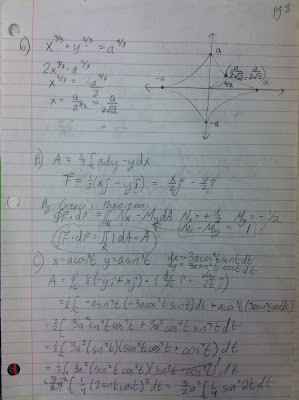 pg 8
6) x^2/3 + y^2/3 = a^2/3
2x^2/3 = a^2/3
x^2/3 = a^2/3 / 2
x = a/2^3/2 = a/2√2
a
(a/2√2, a/2√2)
-a
a
a/2
-a
B) A = ½∫c xdy - ydx
F = ½(xĵ - yî) = x/2 ĵ - y/2 î
By Green's Theorem:
∮F·dr = ∬R Nx - My dA Nx = +½ My = -½
Nx - My = 1
∮F·dr = ∬R 1 dA = A
C) x = acos³t y = asin³t dx = -3acos²t sint dt
dy = 3asin²t cost dt
= ½∫c -asin³t(-3acos²t sint)dt + acos³t(3asin²t cost)dt
= ½∫c 3a²sin⁴t cos²t + 3a²cos⁴t sin²t dt
= ½∫c 3a²(sin²t)(sin²t cos²t + cos⁴t)
= ½∫c 3a²(sin²t cos²t)(sin²t + cos²t) dt
= 3/2 a²∫ ¼(2sint cost)² dt = 3/2 a²∫ ¼ sin²2t dt